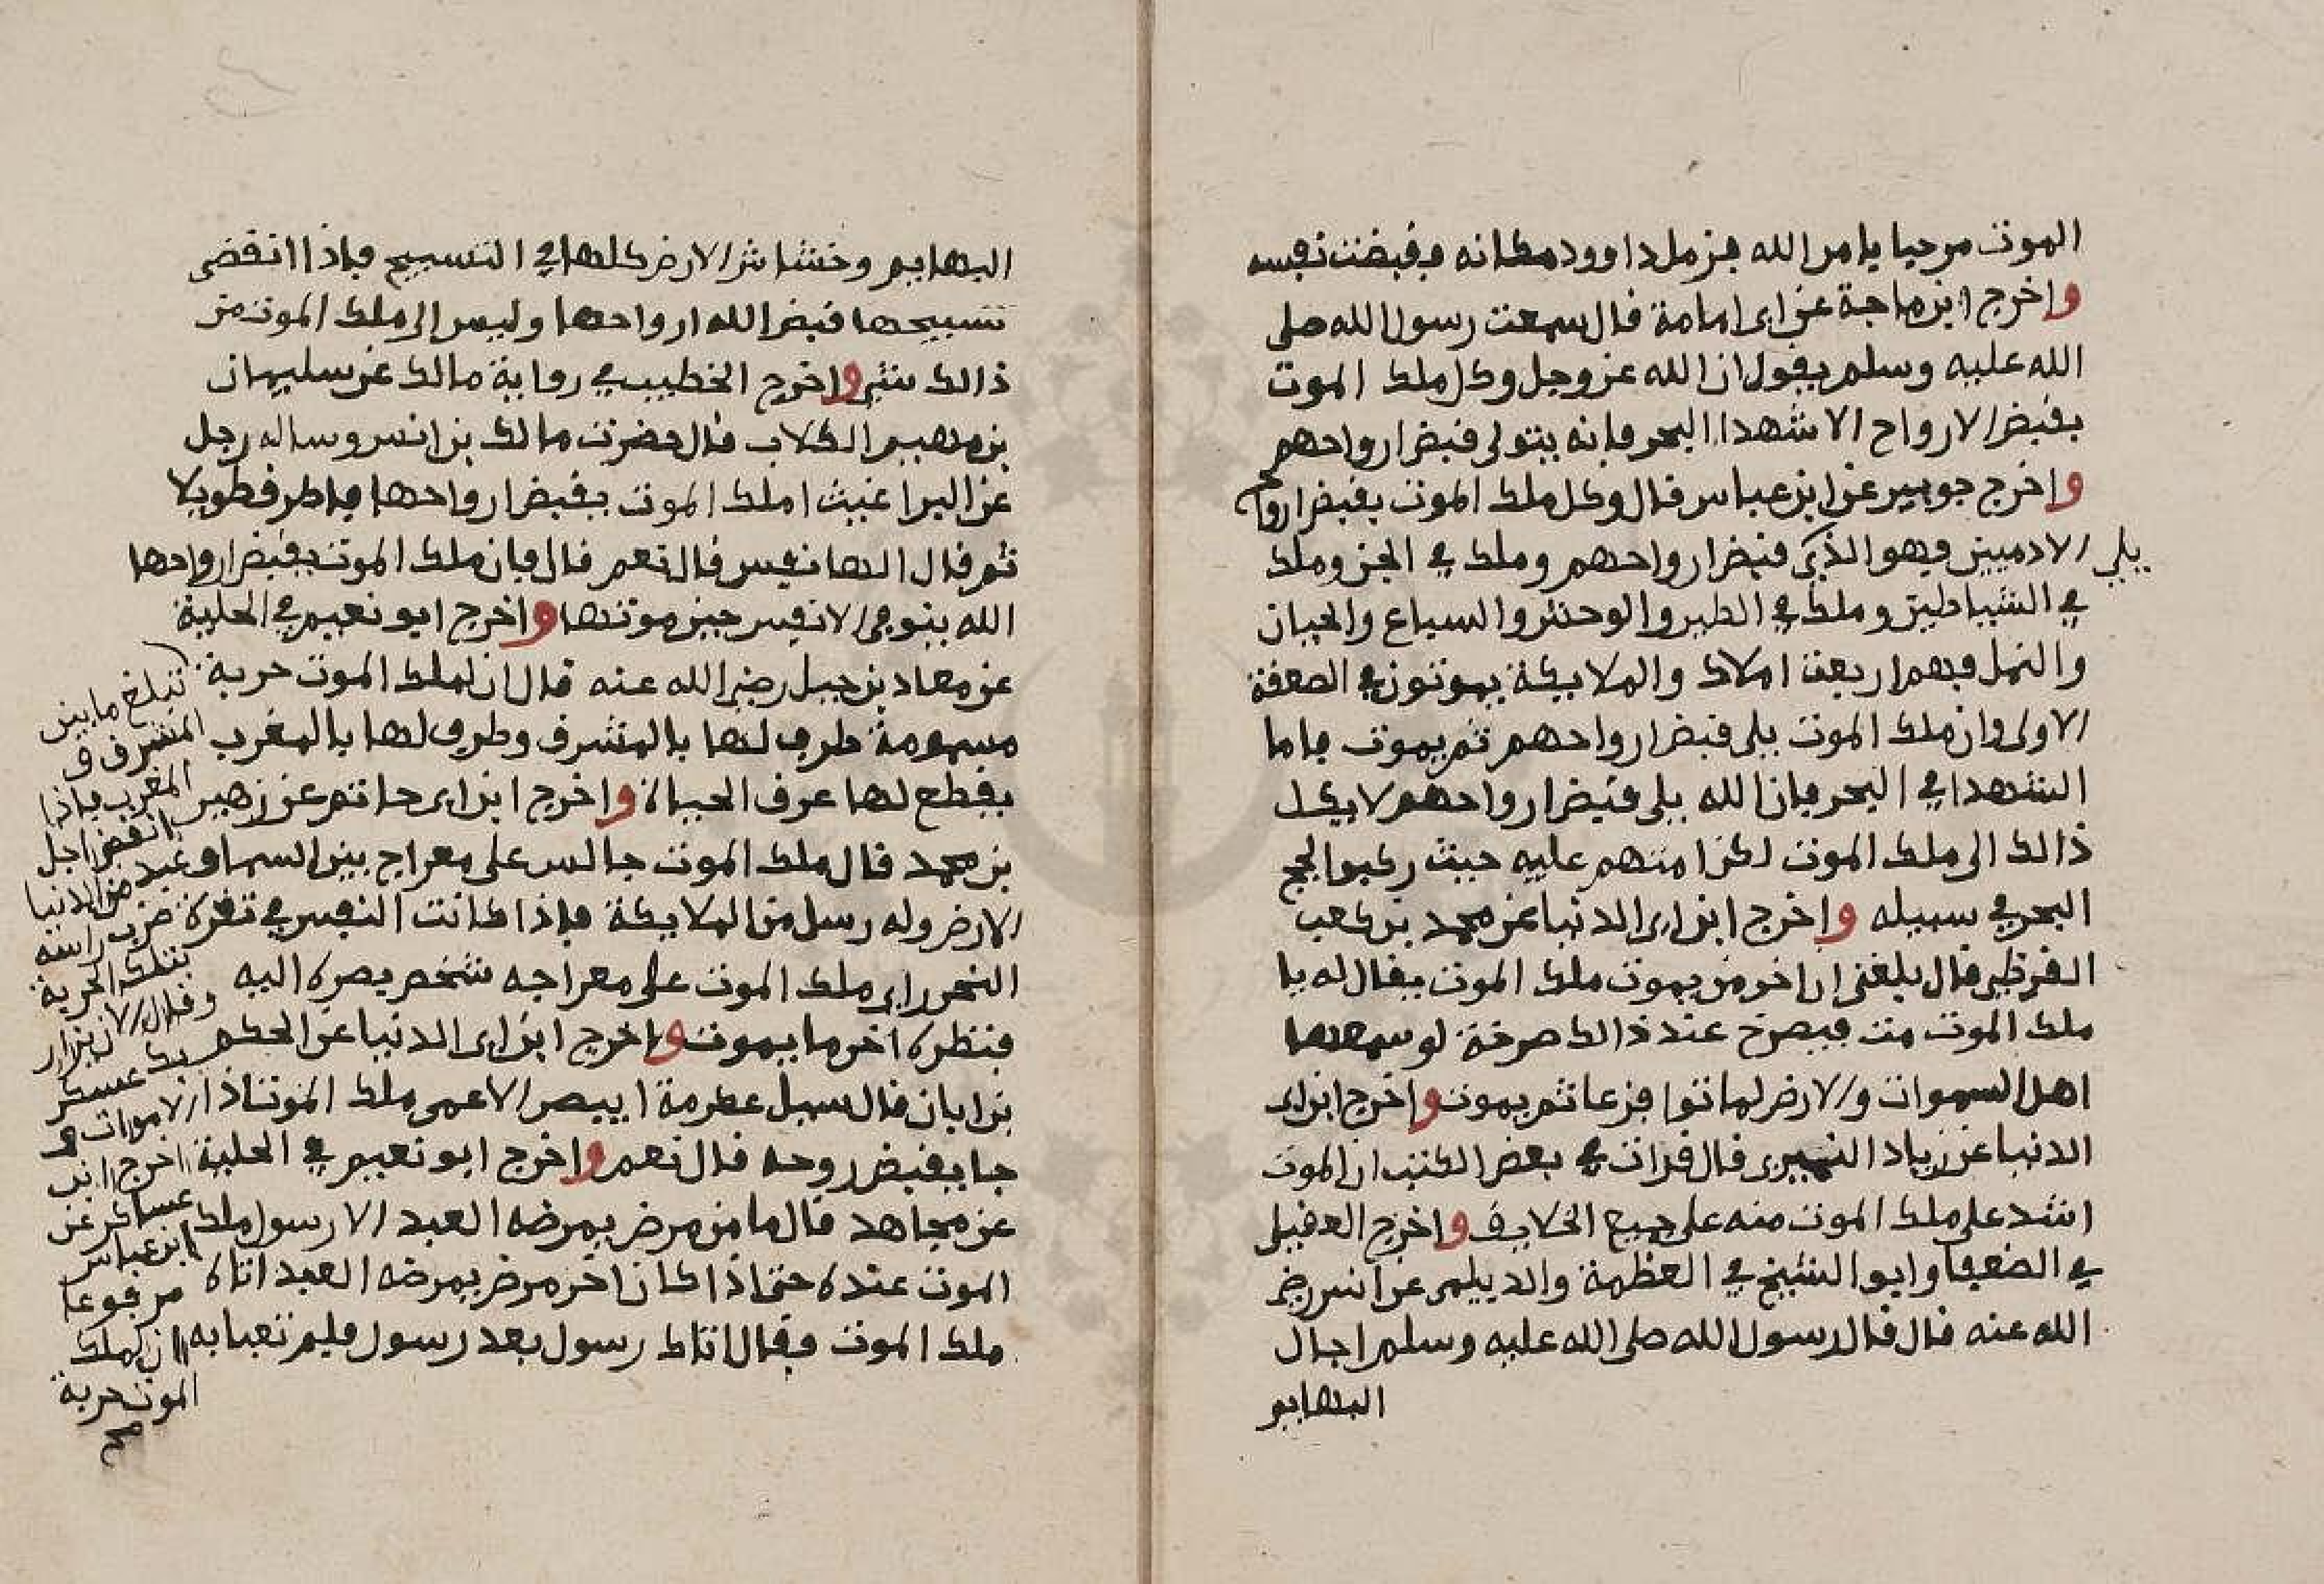 الموت مرحبا بامر الله فزمل داوود مكانه فقبضت نفسه
واخرج ابن ماجة عن ابى امامة قال سمعت رسول الله صلى
الله عليه وسلم يقول ان الله عز وجل وكل ملك الموت
بقبض الارواح الا شهدا البحر فانه يتولى قبض ارواحهم
واخرج جويبر عن ابن عباس قال وكل ملك الموت بقبض ارواح
الادميين فهو الذى يلى قبض ارواحهم وملك في الجن وملك
في الشياطين وملك في الطير والوحش والسباع والحيتان
والنمل فهم اربعت املاك والملايكة يموتون في الصعقة
الاولى وان ملك الموت يلى قبض ارواحهم ثم يموت فاما
الشهدا في البحر فان الله يلى قبض ارواحهم لا يكل
ذالك الى ملك الموت لكرامتهم عليه حيث ركبوا لجج
البحر في سبيله واخرج ابن ابى الدنيا عن محمد بن كعب
القرظى قال بلغنى ان اخر من يموت ملك الموت يقال له يا
ملك الموت مت فيصرخ عند ذالك صرخة لو سمعها
اهل السموات والارض لماتوا فزعا ثم يموت واخرج ابن ابى
الدنيا عن زياد النميرى قال قرات في بعض الكتب ان الموت
اشد على ملك الموت منه على جميع الخلايق واخرج العقيلى
في الضعفا وابو الشيخ في العظمة والديلمى عن انس رضى
الله عنه قال قال رسول الله صلى الله عليه وسلم اجال
البهايم
البهايم وخشاش الارض كلها في التسبيح فاذا انقضى
تسبيحها قبض الله ارواحها وليس الى ملك الموت من
ذالك شئ واخرج الخطيب في رواية مالك عن سليمان
بن مهيم الكلاب قال حضرت مالك بن انس وساله رجل
عن البراغيث املك الموت يقبض ارواحها فاطرق طويلا
ثم قال الها نفس قال نعم قال فان ملك الموت يقبض ارواحها
الله يتوفى الانفس حين موتها واخرج ابو نعيم في الحلية
عن معاد بن جبل رضى الله عنه قال ان لملك الموت حربة
مسمومة طرف لها بالمشرق وطرف لها بالمغرب
يقطع لها عرق الحياة واخرج ابن ابى حاتم عن زهير
بن محمد قال ملك الموت جالس على معراج بين السما و
الارض وله رسل من الملايكة فاذا كانت النفس في ثغرة
النحر راى ملك الموت على معراجه شخص بصره اليه
فنظره اخر ما يموت واخرج ابن ابى الدنيا عن الحكم
بن ابان قال سيل عكرمة ايبصر الاعمى ملك الموت اذا
جا يقبض روحه قال نعم واخرج ابو نعيم في الحلية
عن مجاهد قال ما من مرض يمرضه العبد الا رسول ملك
الموت عنده حتى اذا كان اخر مرض يمرضه العبد اتاه
ملك الموت فقال اتاك رسول بعد رسول فلم تعبا به
تبلغ ما بين
المشرق و
المغرب فاذا
انقضى اجل
عبد من الدنيا
ضرب راسه
بتلك الحربة
وقال الان يزار
بك عسكر
الاموات و
اخرج ابن
عساكر عن
ابن عباس
مرفوعا
ان لملك
الموت حربة